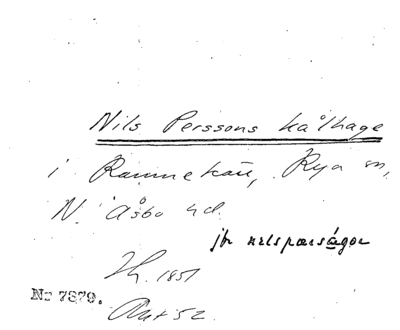 Nils Perssons kålhage
i Rammekärr, Rya sn,
N. Åsbo hd.
jfr nelspærságor
Th. 1851
Nr 7879.
52.